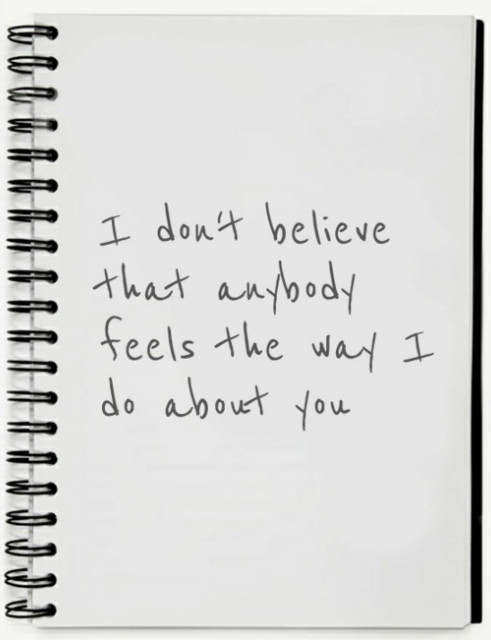 I don't believe
that anybody
feels the way I
do about you